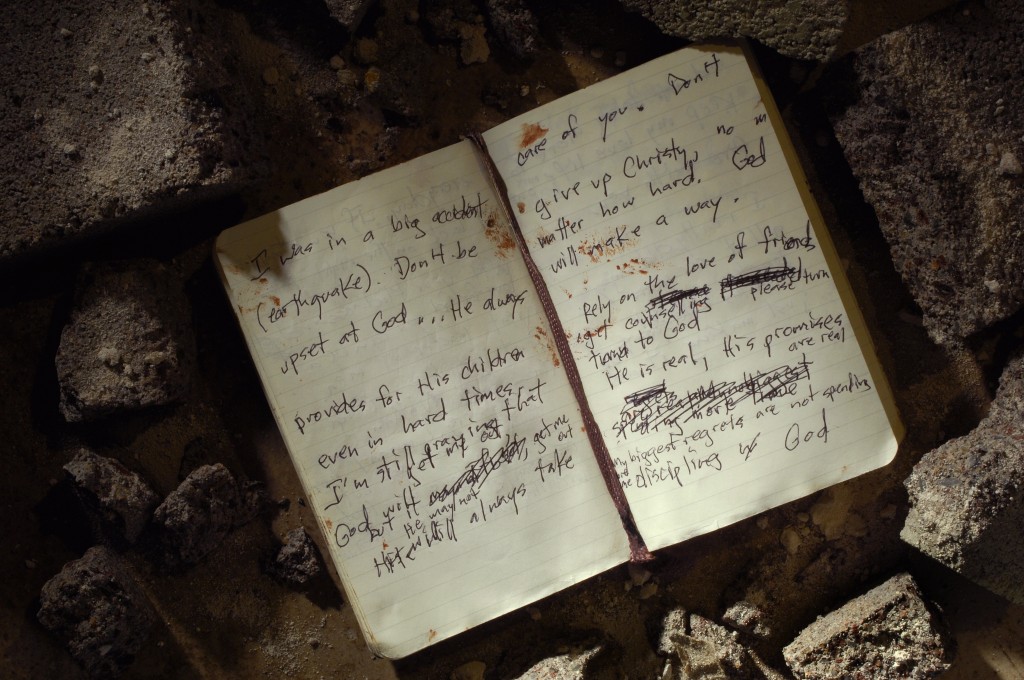 I was in a big accident
(earthquake). Don't be
upset at God .... He always
provides for His children
even in hard times.
I'm still praying that
God will get me out
but He may not
He will always take
care of you. Don't
give up Christy, no
matter how hard. God
will make a way.
Rely on the love of friends
get counselling please turn
to God
He is real, His promises
are real
My biggest regrets are not spending
time discipling w/ God